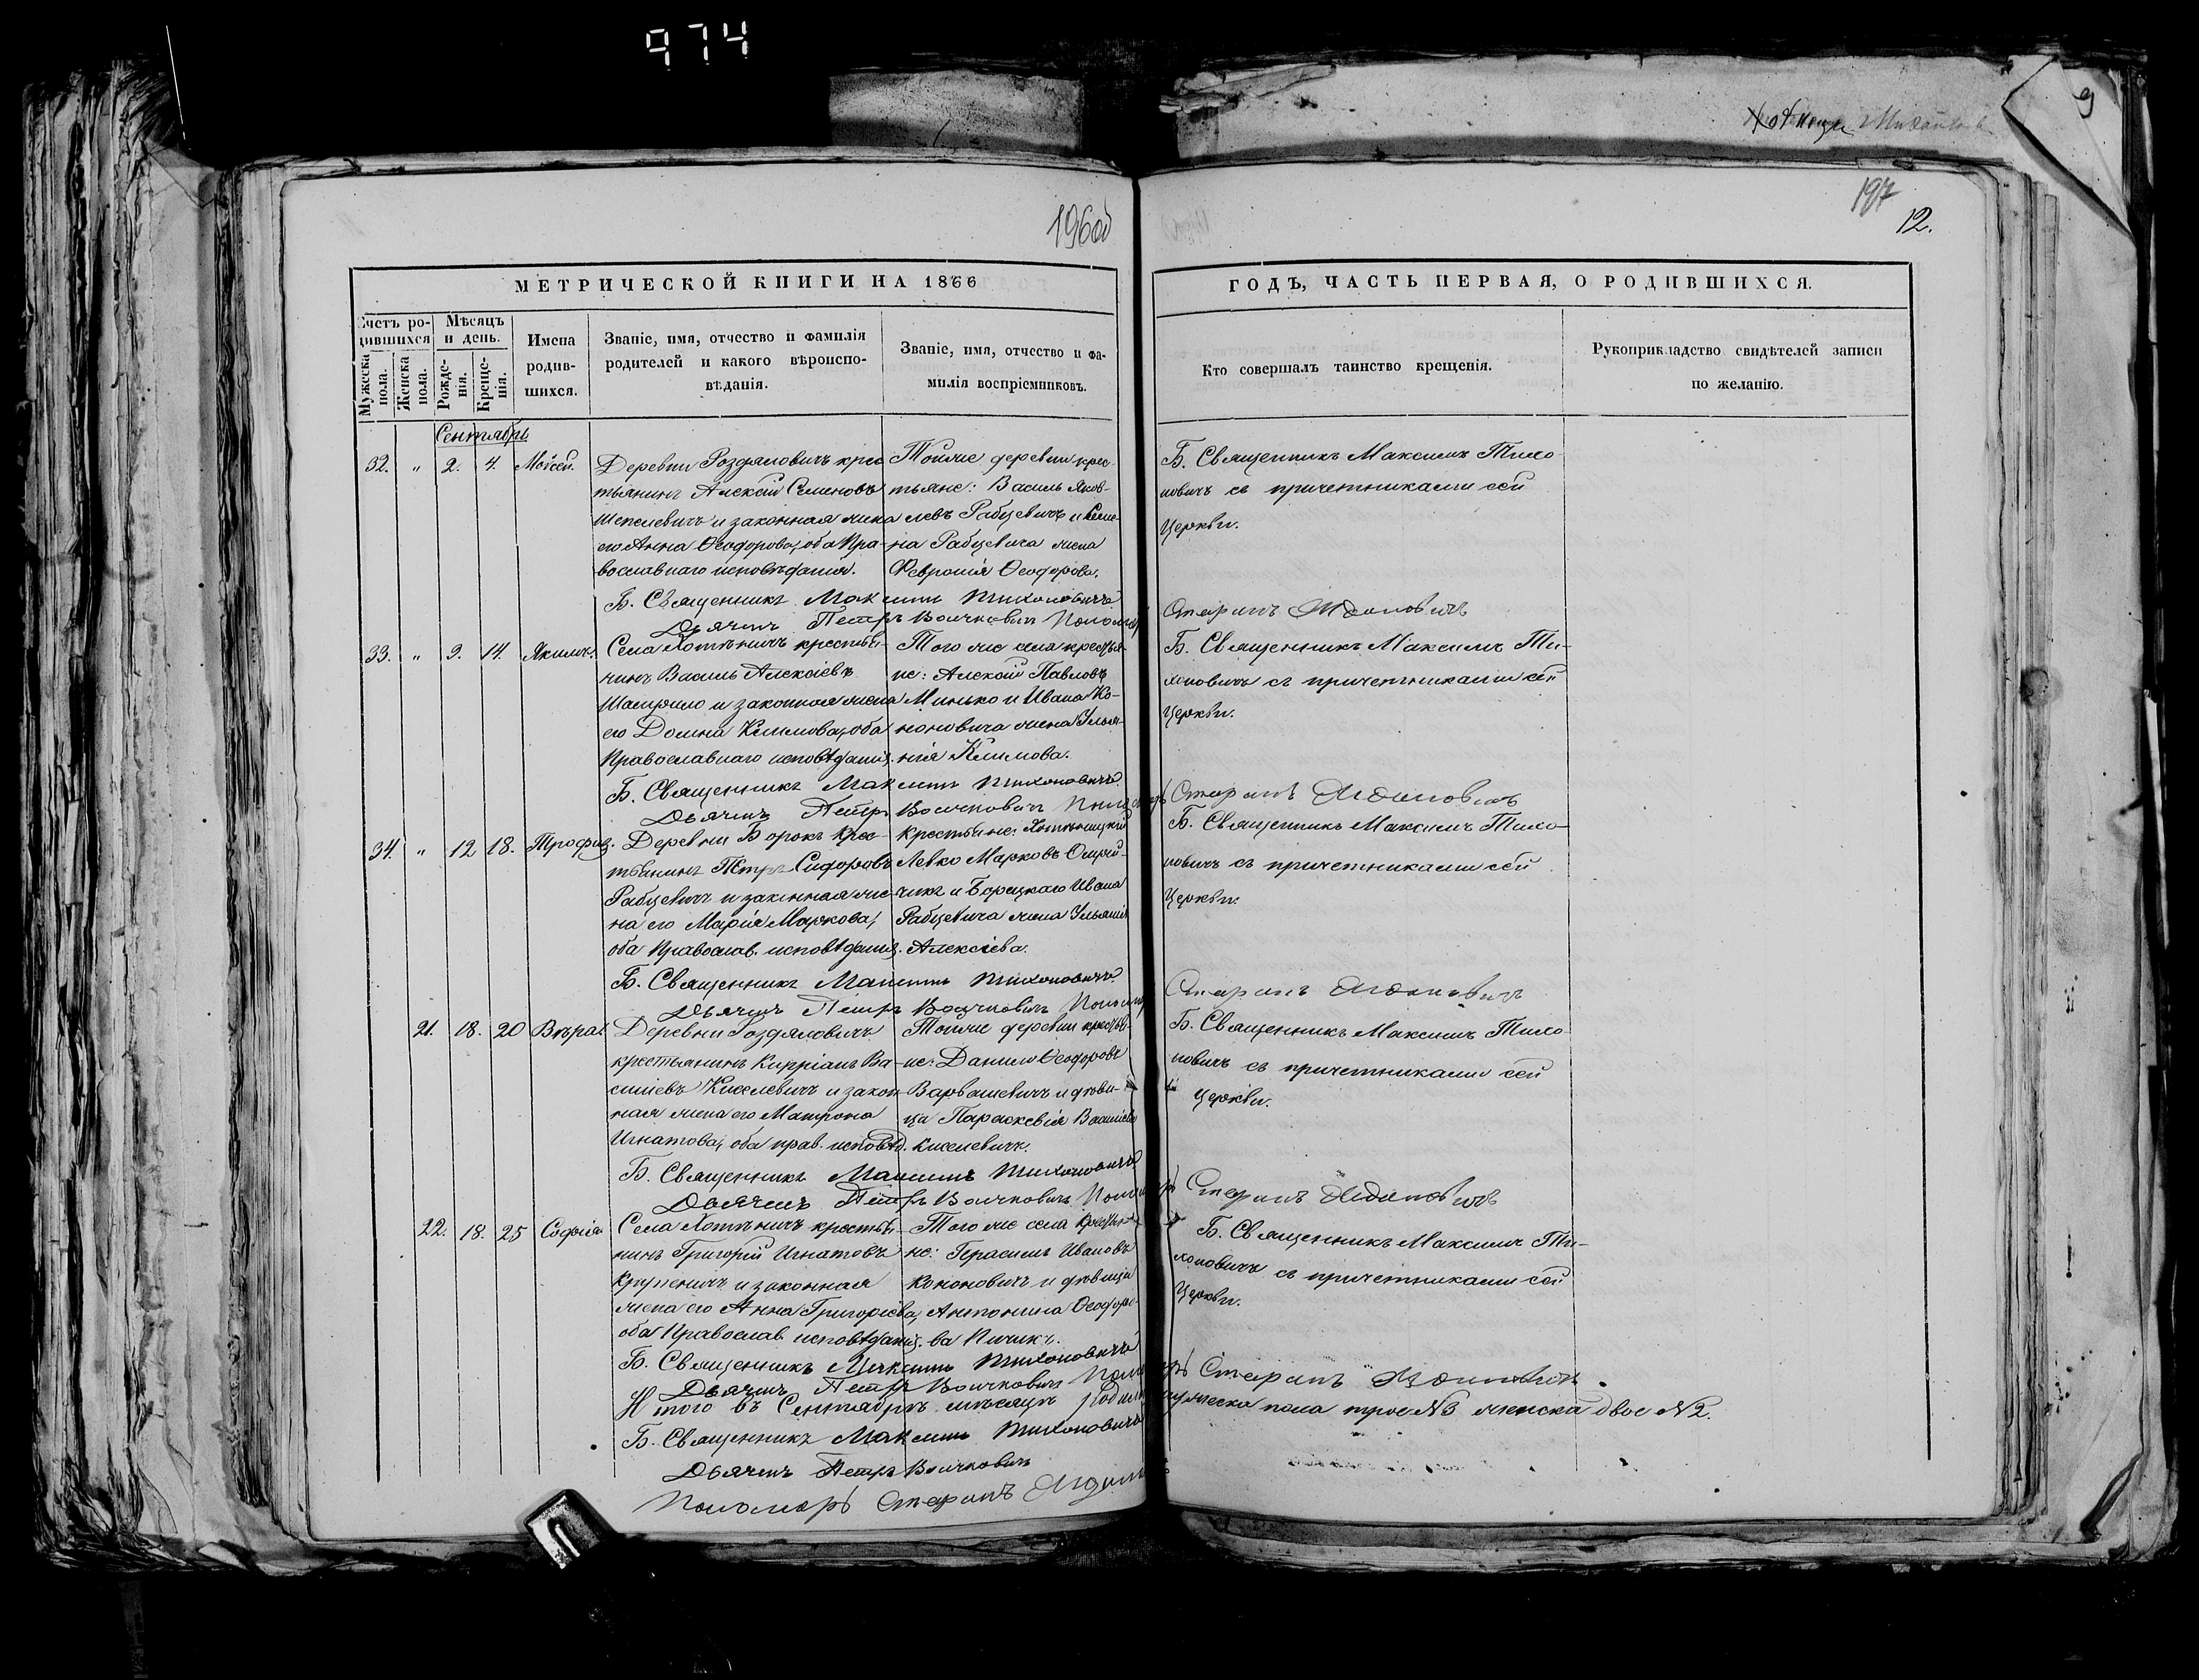 974
Хотеницы
9
196об
197
12.
МЕТРИЧЕСКОЙ КНИГИ НА 1866
ГОДЪ, ЧАСТЬ ПЕРВАЯ, О РОДИВШИХСЯ.
Счетъ ро-
дившихся
Мужеска пола.
Женска пола.
Мѣсяцъ
и день.
Рожде-
нія.
Креще-
нія.
Имена
родив-
шихся.
Званіе, имя, отчество и фамилія
родителей и какого вѣроиспо-
вѣданія.
Званіе, имя, отчество и фа-
милія воспріемниковъ.
Кто совершалъ таинство крещенія.
Рукоприкладство свидѣтелей записи
по желанію.
Сентябрь
32. " 2. 4. Моѵсей.
Деревни Роздяловичъ крес
тьянинъ Алексій Семеновъ
Шепелевичъ и законная жена
его Анна Ѳеодорова, оба Пра-
вославнаго исповѣданія.
Тойже деревни крес-
тьяне: Василь Яков-
левъ Рабцевичъ и Семе-
на Рабцевича жена
Февронія Ѳеодорова.
Б. Священникъ Максимъ Тихо
новичъ съ причетниками сей
Церкви.
Б. Священникъ Максимъ Тихоновичъ
Дьячекъ Петръ Воичковичъ Пономарь Стефанъ
33. " 9. 14. Якимъ.
Села Хотѣничъ крестья-
нинъ Василь Алексіевъ
и законная жена
его Домна Климова, оба
Православнаго исповѣданія.
Того же села крестья-
не: Алексій Павловъ
Минько и Ивана Ко-
ноновича жена Улья-
нія Климова.
Б. Священникъ Максимъ Ти-
хоновичъ съ причетниками сей
Церкви.
Б. Священникъ Максимъ Тихоновичъ
Дьячекъ Петръ Воичковичъ Пономарь Стефанъ
34. " 12 18. Трофим.
Деревни Борокъ крес-
тьянинъ Петръ Сидоровъ
Рабцевичъ и законная же-
на его Марія Маркова,
оба Православ. исповѣданія.
Крестьяне: Хотѣницкій
Левко Марковъ
и Борецкаго Ивана
Рабцевича жена Ульянія
Алексіева.
Б. Священникъ Максимъ Тихо-
новичъ съ причетниками сей
Церкви.
Б. Священникъ Максимъ Тихоновичъ
Дьячекъ Петръ Воичковичъ Пономарь Стефанъ
21. 18. 20 Вѣра
Деревни Роздяловичъ
крестьянинъ Кипріанъ Ва-
силіевъ Киселевичъ и закон-
ная жена его Матрона
Игнатова, оба прав. исповѣд.
Тойже деревни крестья-
не: Данило Ѳеодоровъ
Варвашевичъ и дѣви-
ца Параскевія Василіева
Киселевичъ.
Б. Священникъ Максимъ Тихо
новичъ съ причетниками сей
Церкви.
Б. Священникъ Максимъ Тихоновичъ
Дьячекъ Петръ Воичковичъ Пономарь Стефанъ
22. 18. 25 Софія
Села Хотѣничъ крестья-
нинъ Григорій Игнатовъ
Крупеничъ и законная
жена его Анна Григоріева,
оба Православ. исповѣданія.
Того же села крестья-
не: Герасимъ Ивановъ
Кононовичъ и дѣвица
Антонина Ѳеодоро-
ва Пичикъ.
Б. Священникъ Максимъ Ти-
хоновичъ съ причетниками сей
Церкви.
Б. Священникъ Максимъ Тихоновичъ
Дьячекъ Петръ Воичковичъ Пономарь Стефанъ
Итого въ Сентябрѣ мѣсяцѣ родилось мужеска пола трое №3 женска двое №2.
Б. Священникъ Максимъ Тихоновичъ
Дьячекъ Петръ Воичковичъ
Пономарь Стефанъ